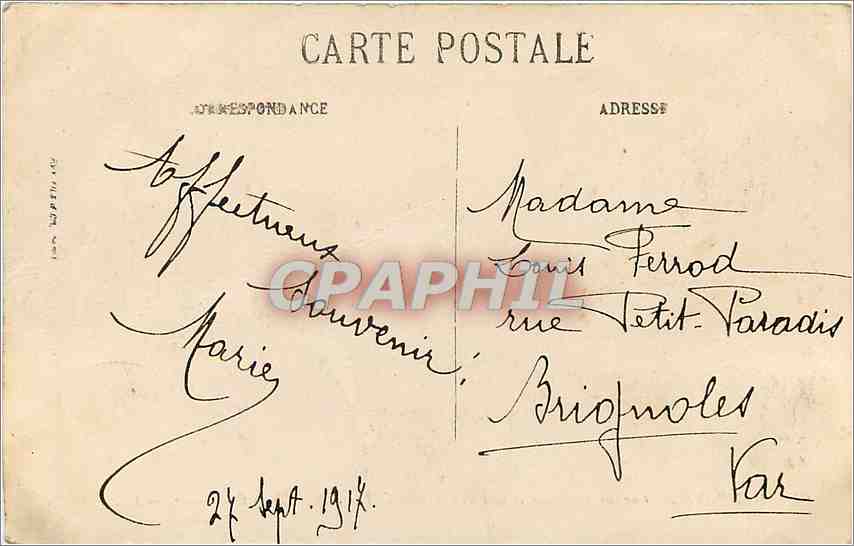 CARTE POSTALE
CORRESPONDANCE
Affectueux
Souvenir!
Marie
27 Sept. 1917.
ADRESSE
Madame
Louis Ferrod
rue Petit-Paradis
Brignoles
Var
CPAPHIL